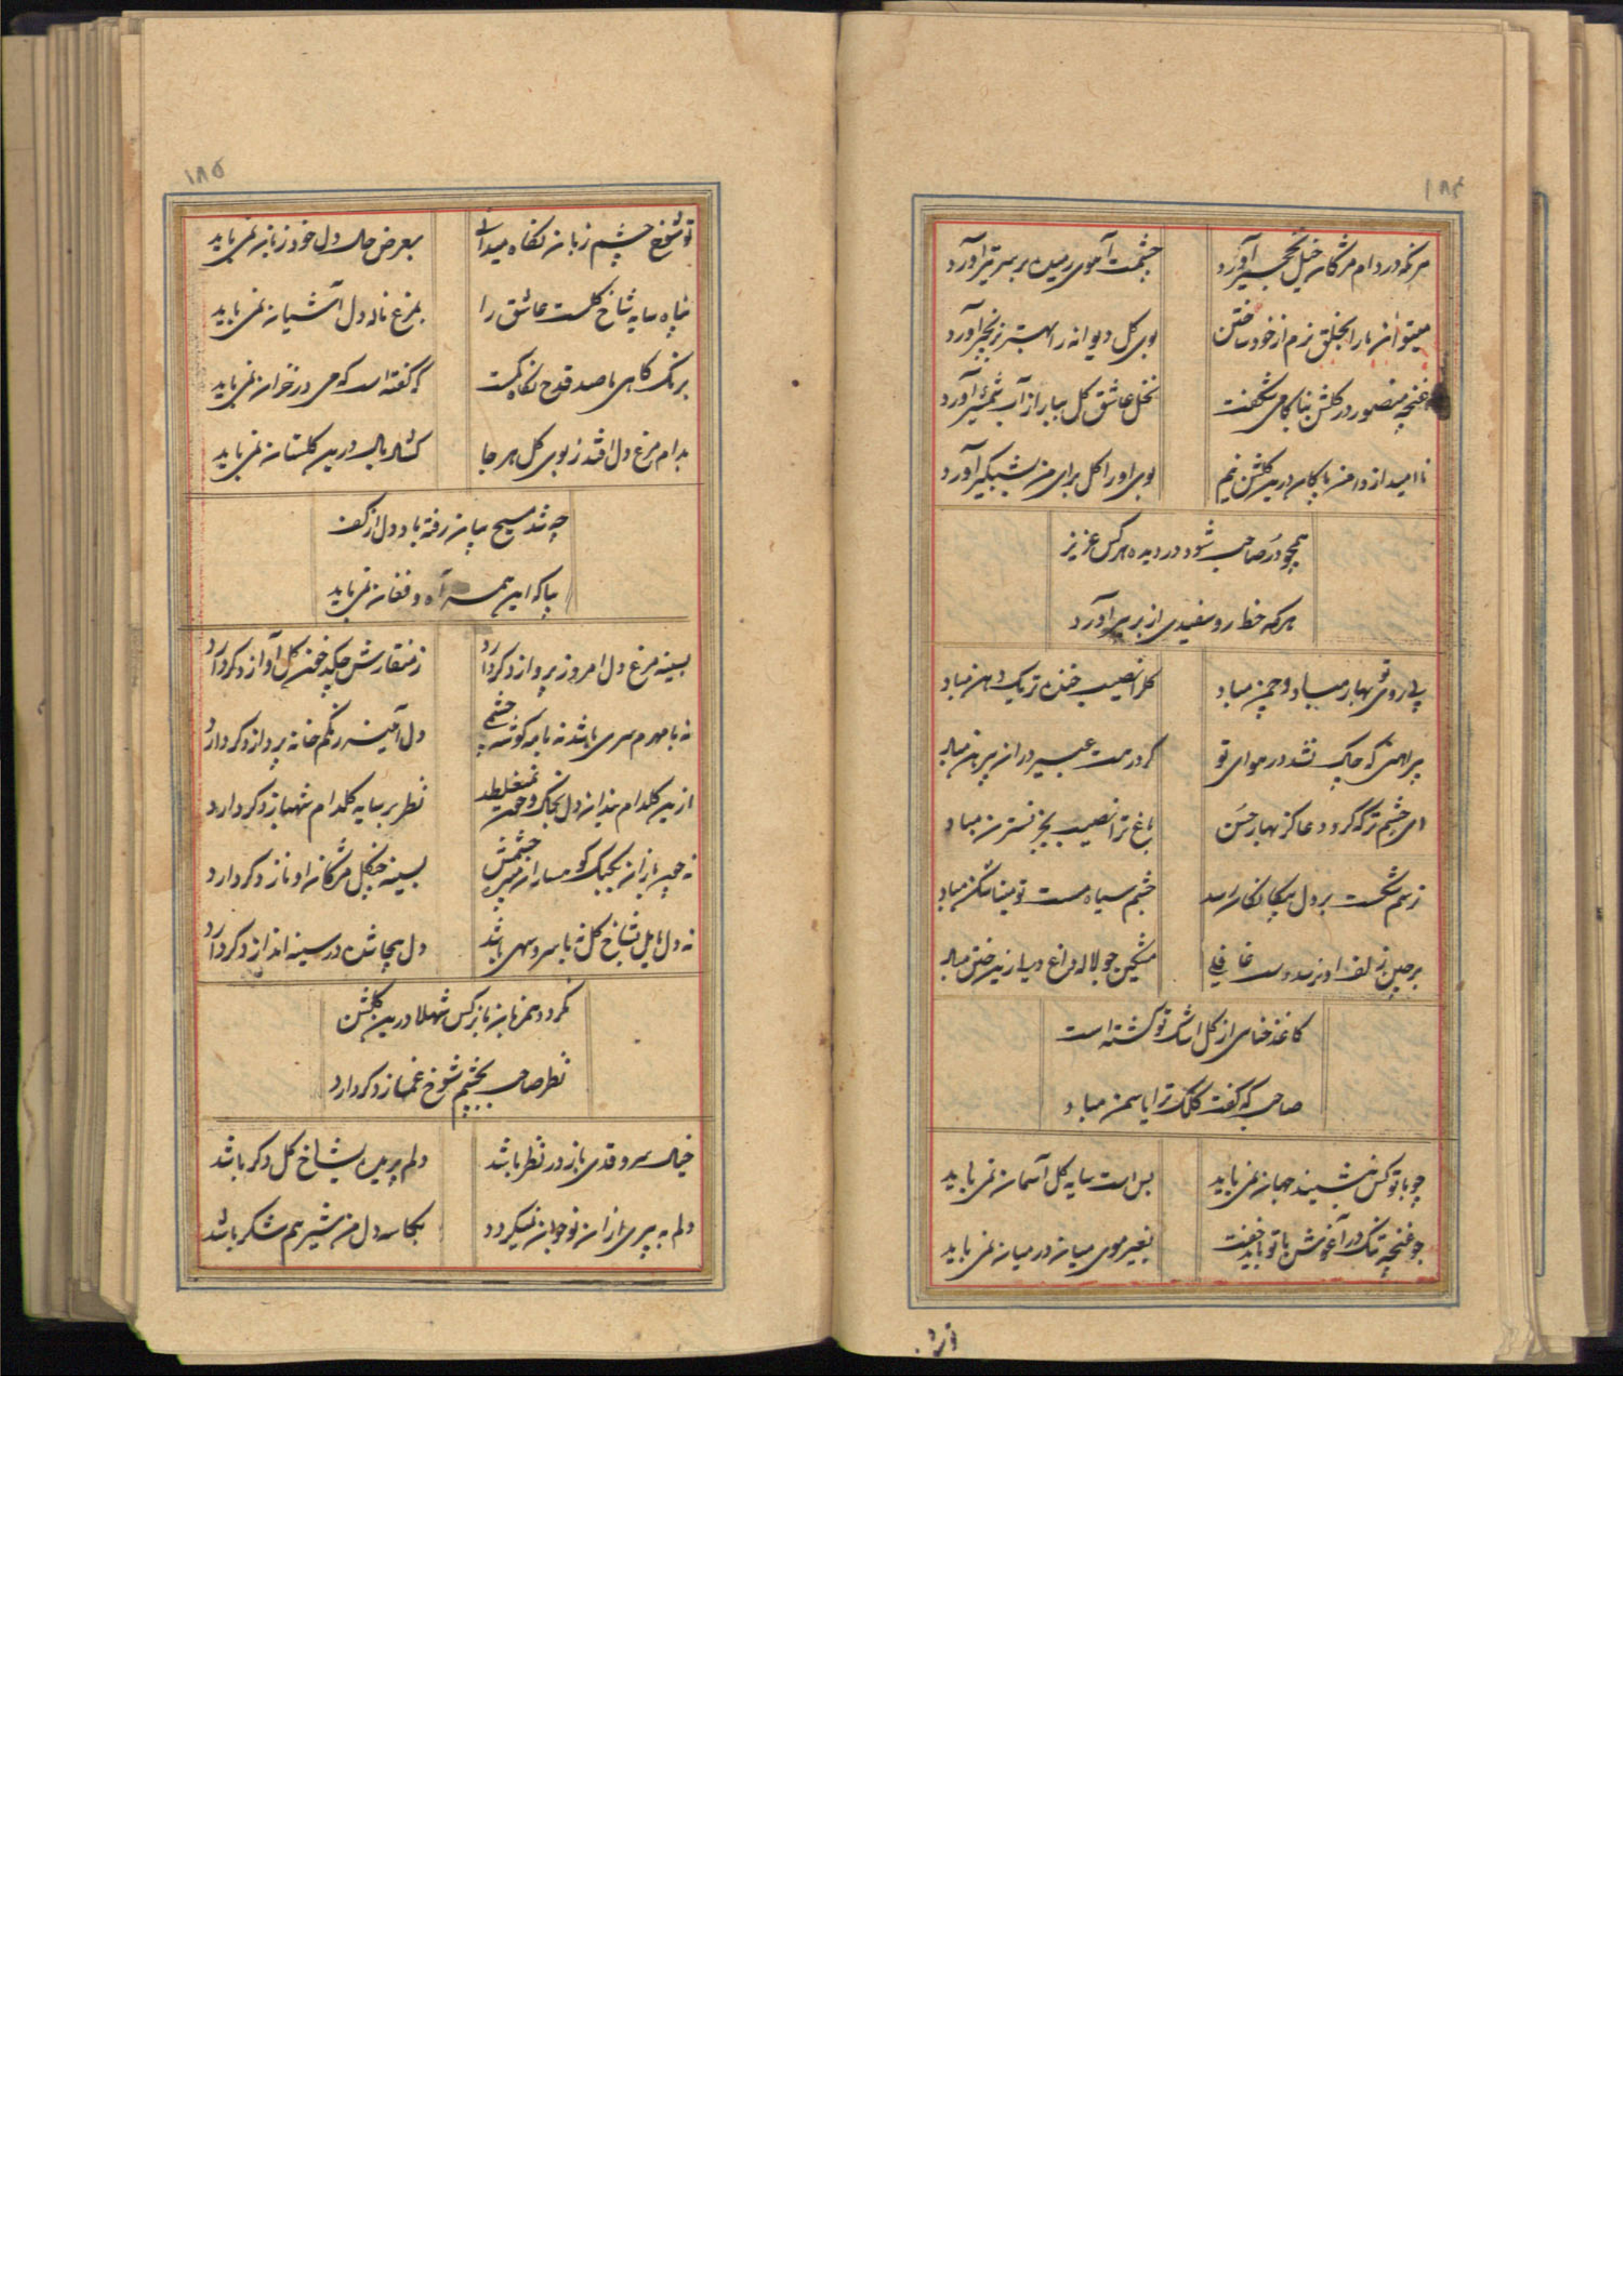 ۱۸۴
هر که در دام مژگان خیل نخجیر آورد
چشمت آهوی رمیده بر سر تیر آورد
میتوان ما را بخلق نرم از خود ساختن
بوی گل دیوانه را بهتر ز زنجیر آورد
غنچه منصور در گلشن بناکامی شکفت
نخل عاشق گل ببار از آب شمشیر آورد
ناامید از در من ناکام درین گلشن نیم
بوی او را گل برای من بشبگیر آورد
همچو در صاحب شود در دیده هر کس عزیز
هر که خط رو سفیدی از بر پیر آورد
بی روی تو بهار مباد و چمن مباد
گل را نصیب خنده ز یک دهن مباد
پیراهنی که چاک نشد در هوای تو
گر در مت عبیر در آن پیرهن مباد
ای چشم تر که کرد دعا کز بهار حسن
باغ ترا نصیب بجز نسترن مباد
ز سم شکست بر دل بیگانگان رسد
چشم سیاه مست تو پیمان شکن مباد
بر چین زلف او نرسد دست غافلی
مشکین چو لاله داغ دل از ختن مباد
کاغذ حنای از گل اشک تو گشته است
صاحب که گفت کلک ترا یاسمن مباد
چو با تو کس بنشیند جهان نمی باید
بس است سایه گل آسمان نمی باید
چو غنچه تنگ در آغوش با تو باید خفت
بغیر موی میان در میان نمی باید
۱۸۵
تو شوخ چشم زبان نگاه میدانی
بعرض حال دل خود زبان نمی باید
پناه سایه شاخ گلست عاشق را
بمرغ ناله دل آشیان نمی باید
برنگ کاهی ما صد قدح نگاه تست
که گفته است که می در خزان نمی باید
بدام مرغ دل افتد ز بوی گل هر جا
گشاد بال درین گلستان نمی باید
چه شد مسیح بیان رفته باد دل از کف
بیا که این همه آه و فغان نمی باید
بسینه مرغ دل امروز پرواز دگر دارد
ز منقارش چکد خون گل آواز دگر دارد
نه با مهرم سری باشد نه با مه گوشه چشم
دل آیینه رنگم خانه پرداز دگر دارد
ازین گلدام بندان دل بخاک و خون نمیغلطد
نظر بر سایه گلدام شهباز دگر دارد
بسینه چنگل مژگان او ناز دگر دارد
نه دل مایل بشاخ گل نه با سرو سهی باشد
دل بیجا شده در سینه انداز دگر دارد
نگردد همزبان با نرگس شهلا درین گلشن
نظر صاحب بچشم شوخ غماز دگر دارد
خیال سرو قدی باز در نظر باشد
دلم پریده بشاخ گل دگر باشد
دلم به پیری از آن نوجوان نمیگردد
بکاسه دل من شیر هم شکر باشد